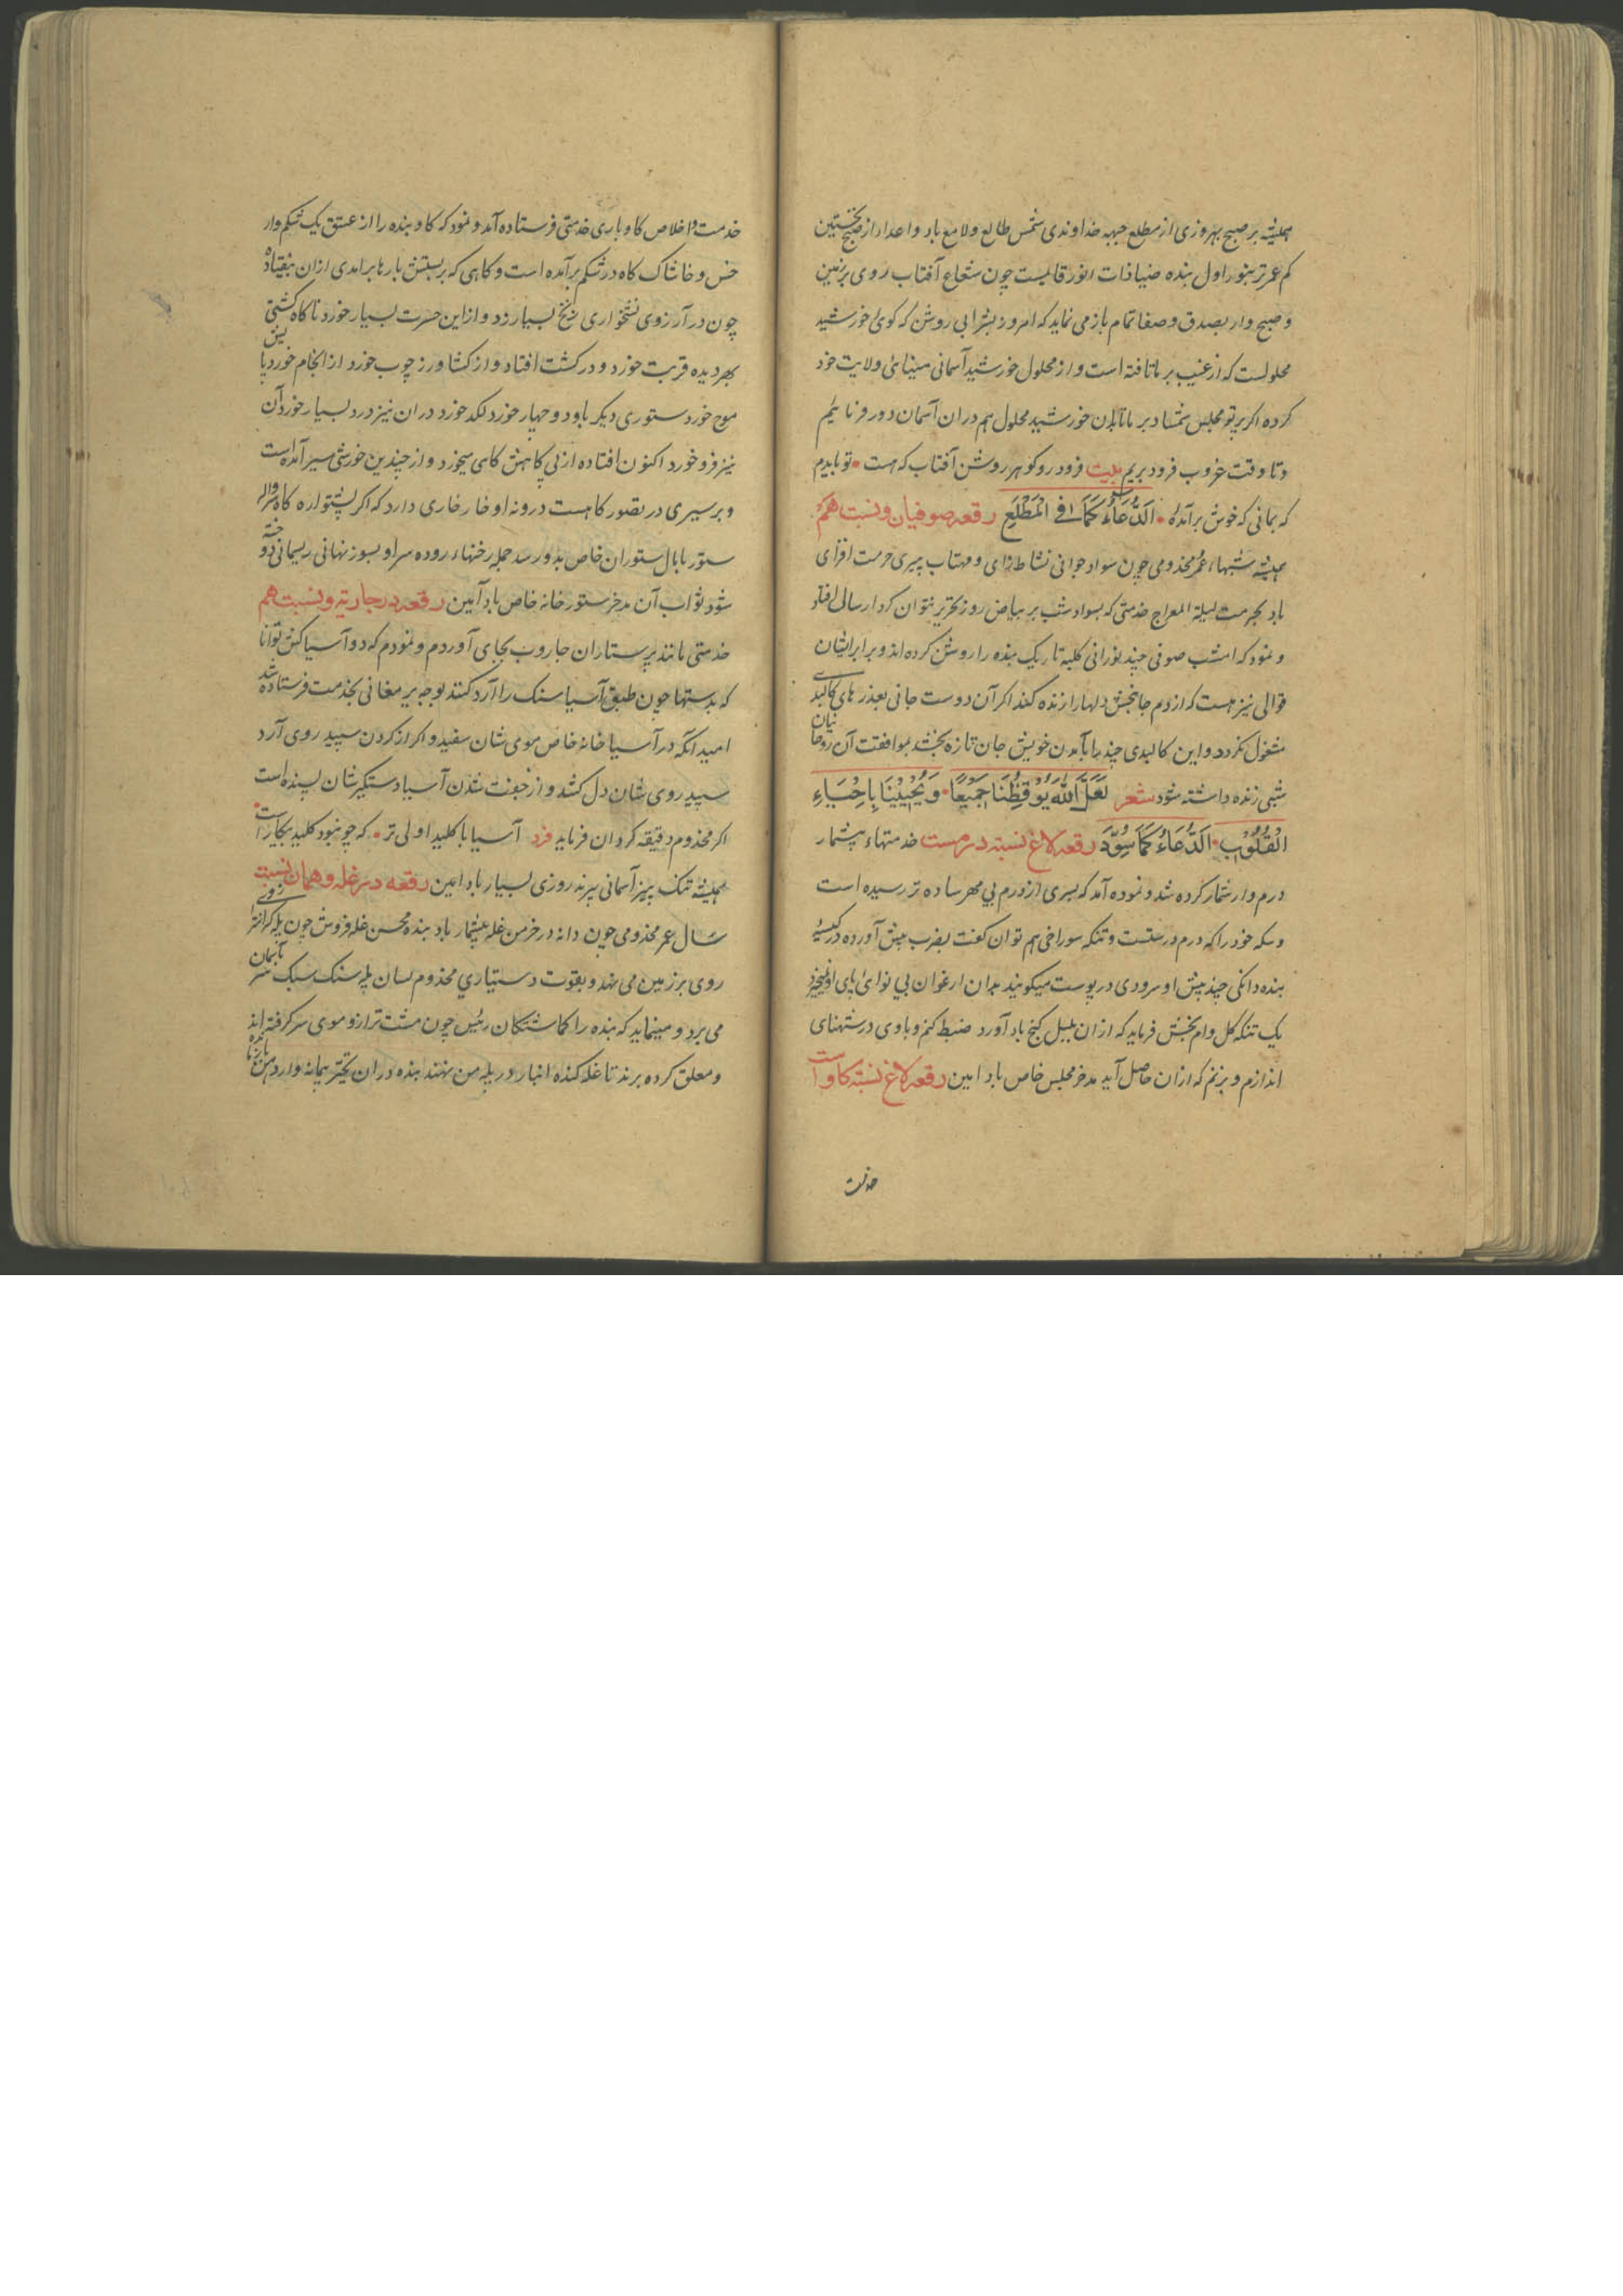 همیشه بر صبح بهروزی از مطلع جبهه خداوندی شمس طالع و لامع باد و اعدا را از صبح نخستین
کم عمرتر بنور اول بنده ضیا ذات انور قابلیست چون شعاع آفتاب روی بر زمین
و صبح وار بصدق و صفا تمام باز می نماید که امروز بشرابی روشن که کوئ خورشید
محلولست که از غیب بر ما تافته است و از محلول خورشید آسمانی مینائ ولایت خود
کرده اکر پرتو مجلس شمشاد بر ما تابان خورشید محلول هم در ان آسمان دور فرنائیم
و تا وقت غروب فرود بریم بیت فرود رو کو هر روشن آفتاب که هست • تو بایدم
که بمانی که خوش برآمدهٔ • الدعاء کما فی المطلع رقعه صوفیان و نسبت هم
همیشه شبهاء عمر مخدومی چون سواد جوانی نشاط زای و مهتاب پیری حرمت افزای
باد بحرمت لیلة المعراج خدمتی که بسواد شب بر بیاض روز تحریر بتوان کرد ارسال افتاد
و نمود که امشب صوفی چند نورانی کلبهٔ تاریک بنده را روشن کرده اند و برابر ایشان
قوالی نیز هست که از دم جانبخش دلها را زنده کند اکر آن دوست جانی بعذرهای کالبد
مشغول نکردد و این کالبدی چند را بآمدن خویش جان تازه بخشد بموافقت آن روحانیان
شبی زنده داشته شود شعر لَعَلَّ اللهَ يُوقِظُنَا جَمِيعًا • وَيُحْيِينَا بِإِحْيَاءِ
الْقُلُوبِ • الدُّعَاءُ كَمَا سُوِّدَ رقعه لاغ نسبته درمست خدمتهاء بیشمار
درم وار شمار کرده شد و نموده آمد که بسری از درم بی مهر ساده تر رسیده است
و سکه خود را که درم درستست و تنکه سوراخی هم توان کفت بضرب پیش آورده در کیسهٔ
بنده دانکی چند پیش او سرودی در پوست میکویند بدان ارغوان بی نوائ پای او نمیخیزد
یک تنکه کل وام بخش فرماید که از ان بلبل کنج باد آورد ضبط کنم و باوی درشتهنای
اندازم و بزنم که از ان حاصل آید مدخر مجلس خاص باد امین رقعه لاغ نسبته کاو است
خدمت
خدمت و اخلاص کاو باری خدمتی فرستاده آمد و نمود که کاو بنده را از عشق یک شکم وار
خس و خاشاک کاه در شکم برآمده است و کاهی که بر پستش بارها برامدی ازان بیفتاد
چون در آرزوی نشخواری زنخ بسیار زد و از این حسرت بسیار خورد ناکاه کشتی
بهر دیده قربت خورد و در کشت افتاد و از کشاورز چوب خورد از انجام خورد پا پس
موج خورد ستوری دیکر باود و چهار خورد لکد خورد در ان نیز درد بسیار خورد آن
نیز فرو خورد اکنون افتاده از بی کاهش کاهی میخورد و از چندین خورشی سیر آمده است
و بر سیری در تصور کاهست درونه او خار خاری دارد که اکر پشتواره کاه
ستور با بال ستوران خاص بدو رسد جمله رخنهاء روده سر او بسوز نهانی ریسمانی دوخته
شود ثواب آن مدخر ستورخانه خاص باد آمین رقعه بر جاریه و نسبت هم
خدمتی مانند پرستاران جاروب بجای آوردم و نمودم که دو آسیا کش توانا
که بدستها چون طبق آسیا سنک را آرد کنند بوجه یرمغانی بخدمت فرستاده شد
امید انکه در آسیا خانه خاص موی شان سفید و اکر از کردن سپید روی آرد
سپید روی شان دل کشد و از جفت شدن آسیا دستکیر شان پسنده است
اکر مخدوم دقیقه کردان فرماید فرد آسیا با کلید اولی تر • که چو نبود کلید بیکار است
همیشه تنک بیز آسمانی بپزند روزی بسیار باد امین رقعه در غله و همان نسبت
سال عمر مخدومی چون دانه در خرمن غله بیشمار باد بنده محسن غله فروش چون پله کرانتر از وی
روی بر زمین می نهد و بقوت دستیاری مخدوم بسان پله سنک سبک سر بآسمان
می برد و مینماید که بنده را کماشتکان رئیس چون مشت ترازو موی سر کرفته اند
و معلق کرده برند تا غله کنده انبار در پله من نهند بنده دران تحیر پیمانه وار دهن باز مانده